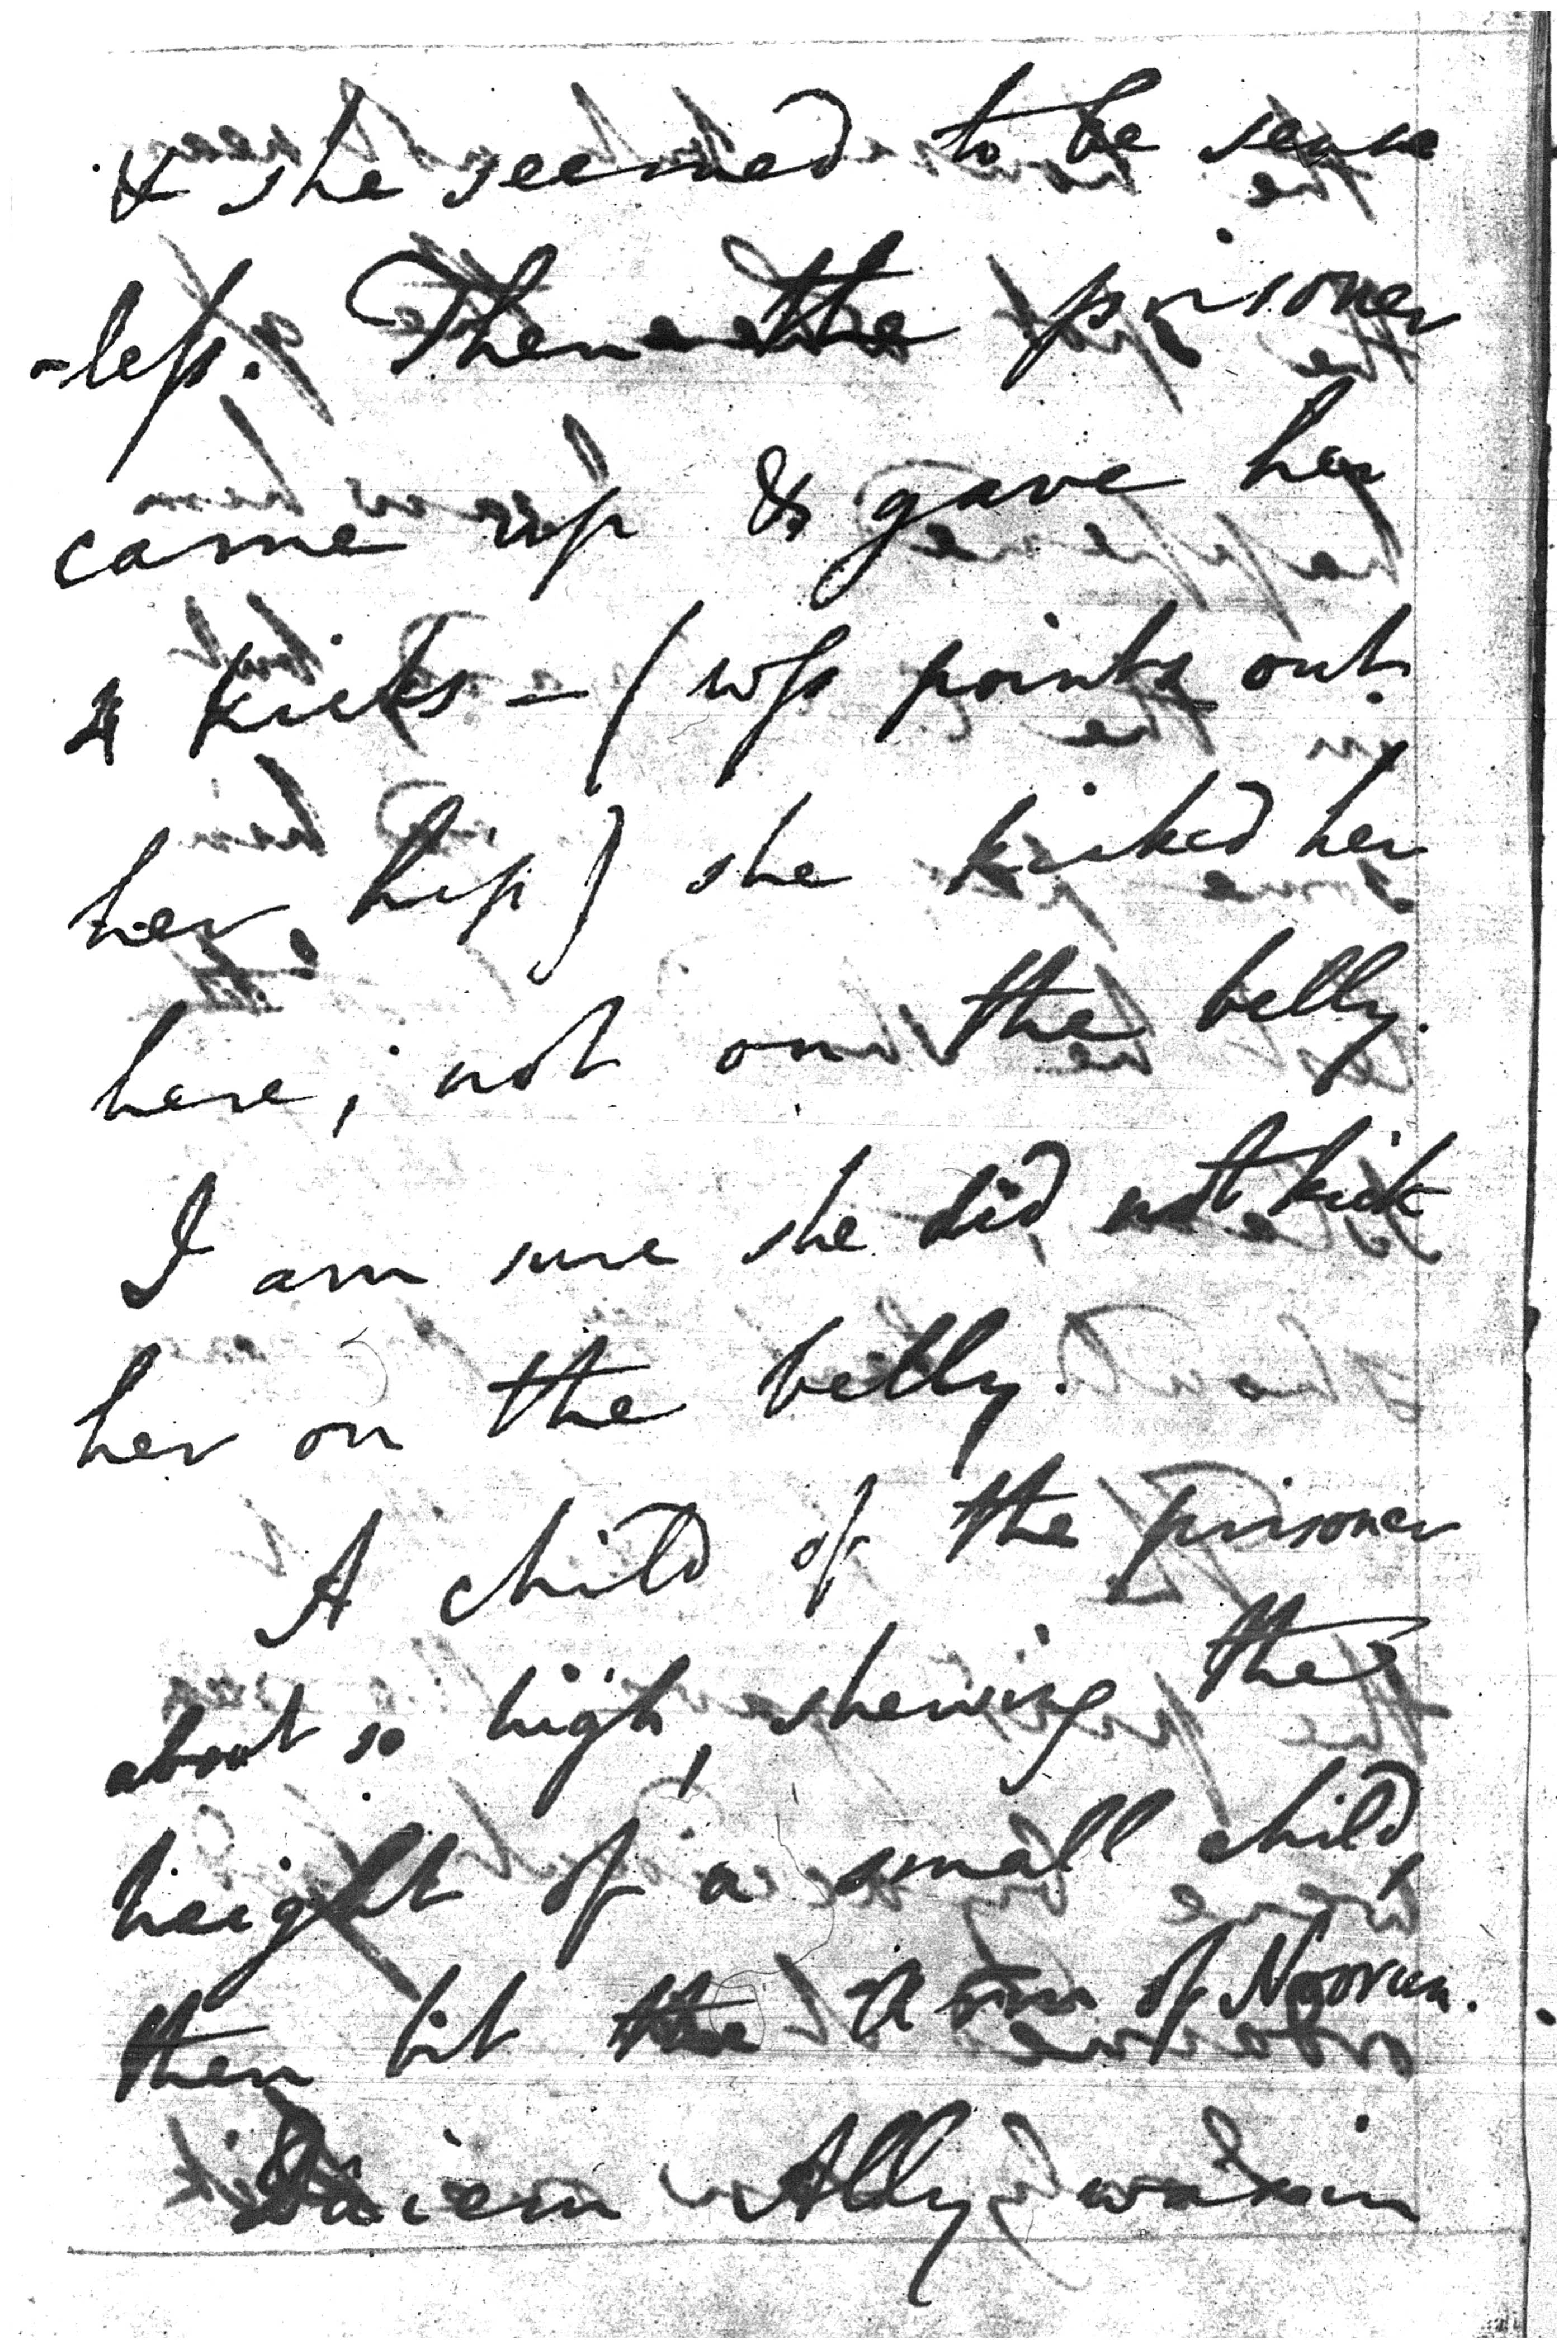 & she seemed to be sense
-less. Then the prisoner
came up & gave her
4 kicks - (wss points out
her hip) she kicked her
here; not on the belly.
I am sure she did not kick
her on the belly.
A child of the prisoner
about so high, shewing the
height of a small child,
then bit the arm of Noorun.
Daiem Ally was in